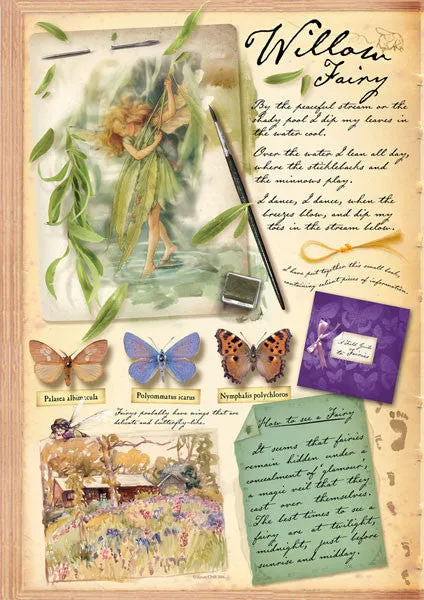 Willow
Fairy
By the peaceful stream or the
shady pool I dip my leaves in
the water cool.
Over the water I lean all day,
where the sticklebacks and
the minnows play.
I dance, I dance, when the
breezes blow, and dip my
toes in the stream below.
I have put together this small book,
containing salient pieces of information.
A Field Guide
to Fairies
Palaea albimacula
Polyommatus icarus
Nymphalis polychloros
Fairys probably have wings that are
delicate and butterfly-like.
How to see a Fairy
It seems that fairies
remain hidden under a
concealment of glamour,
a magic veil that they
cast over themselves.
The best times to see a
fairy are at twilight,
midnight, just before
sunrise and midday.